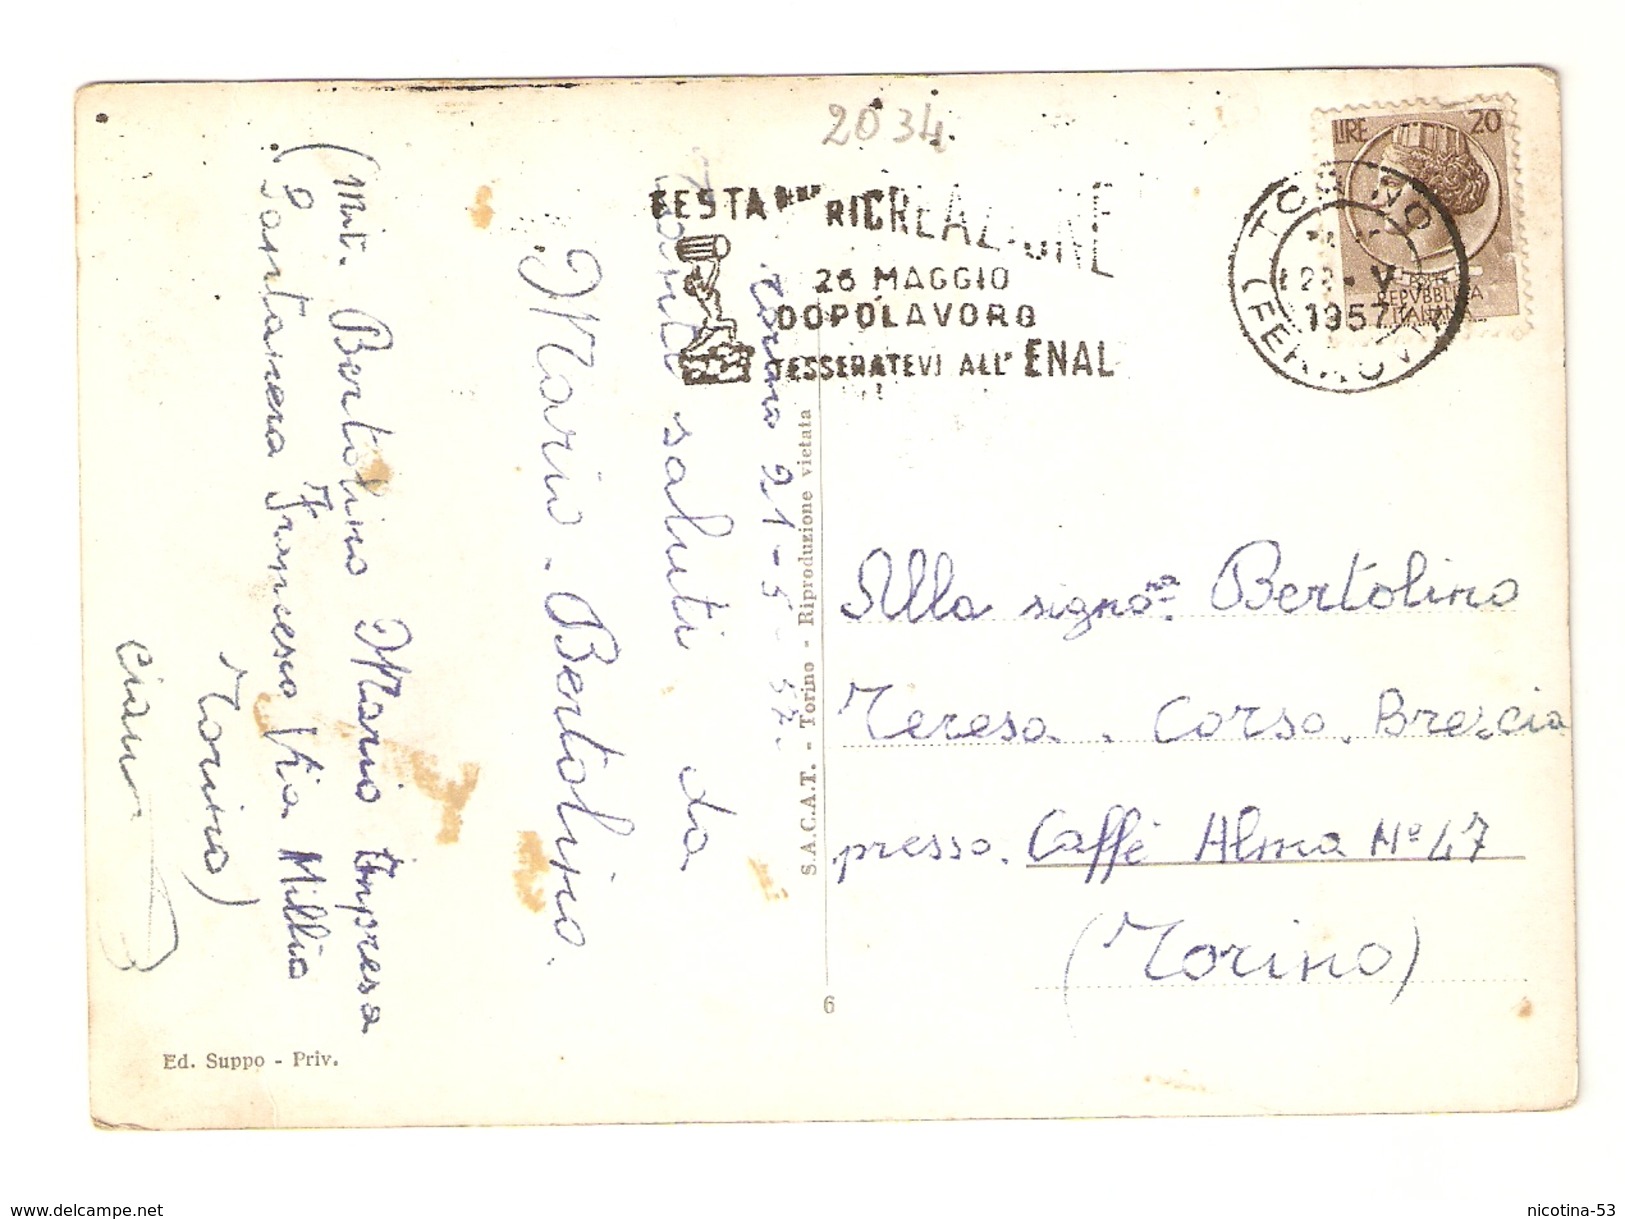 2034
LIRE 20
POSTE
REPVBBLICA
ITALIANA
TORINO
(FERROVIA)
22 · V
1957
FESTA DELLA RICREAZIONE
26 MAGGIO
DOPOLAVORO
TESSERATEVI ALL' ENAL
Torino 21-5-57.
saluti da
Mario. Bertolino.
(Mit. Bertolino Mario Impresa
Santanera Francesco Via Millio
Torino)
Ciau
Alla signora Bertolino
Teresa. Corso. Brescia
presso. Caffè Alma N° 47
(Torino)
S.A.C.A.T. - Torino - Riproduzione vietata
6
Ed. Suppo - Priv.
www.delcampe.net
nicotina-53